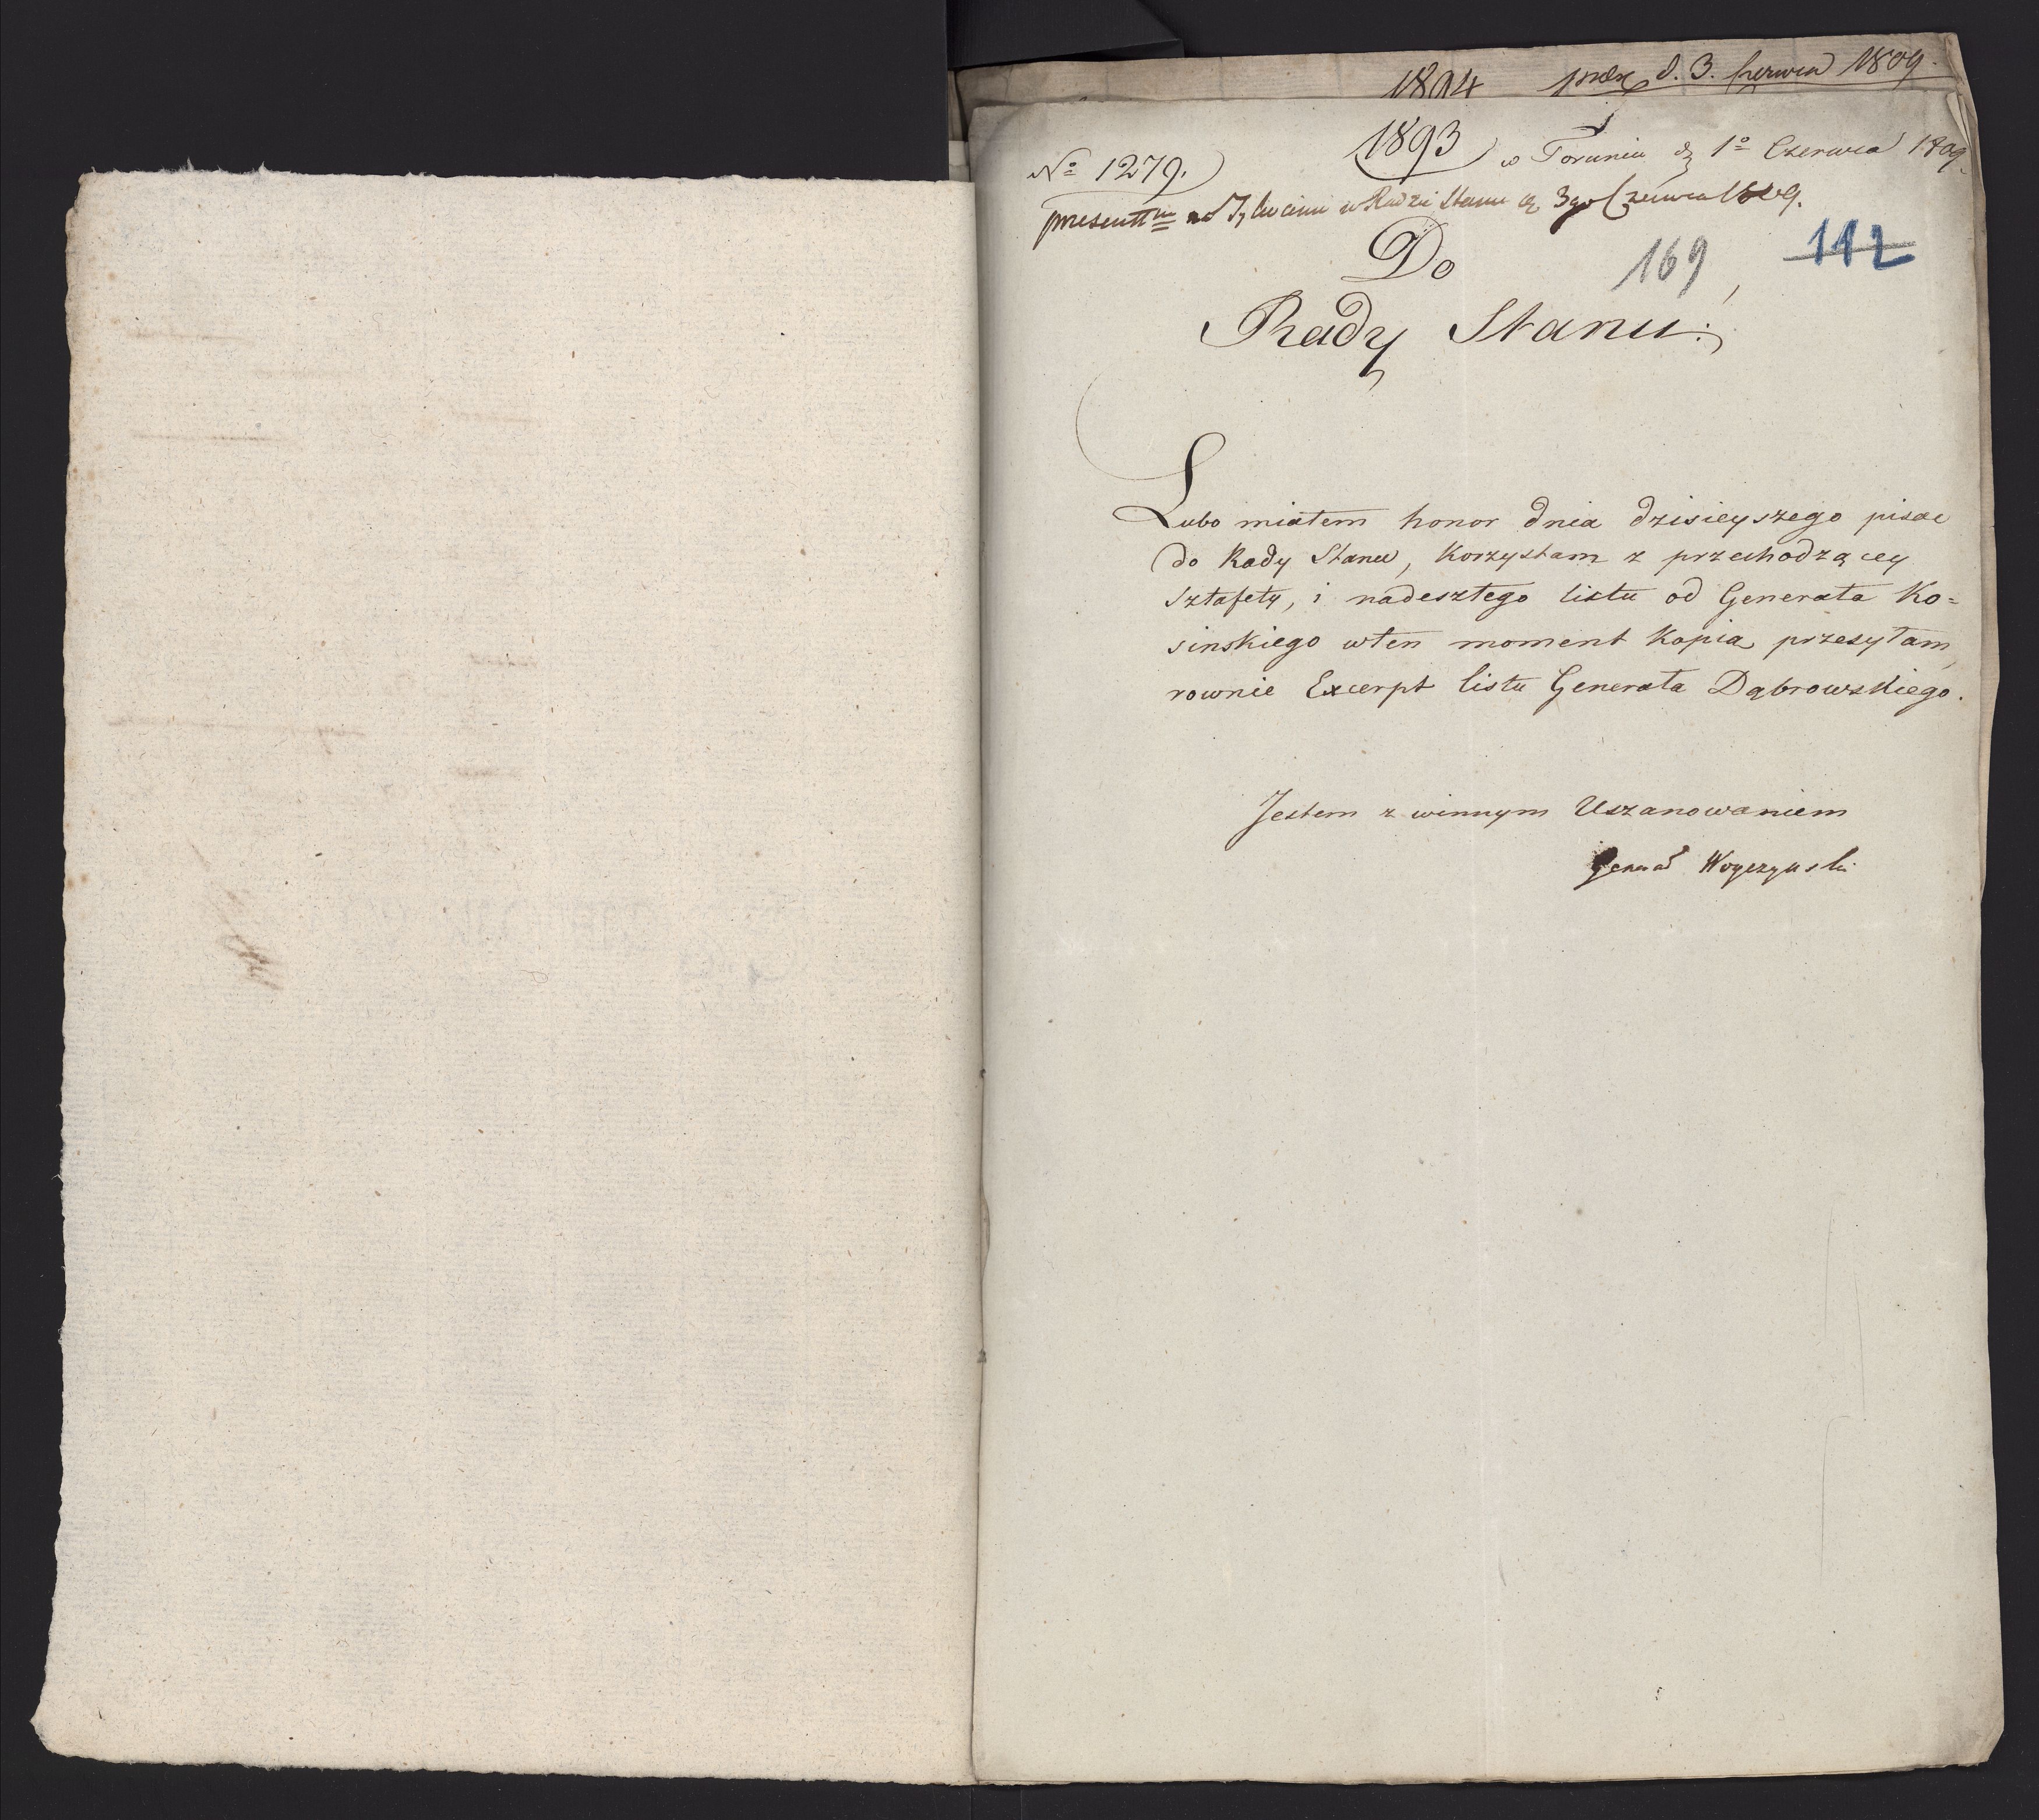 1894 d. 3. Czerwca 1809.
1893
w Toruniu dz 1º Czerwca 1809.
Nº 1279.
presenttm w Tykocinie w Radzie Stanu dz 3go Czerwca 1809.
169 112
Do
Rady Stanu:
Lubo miałem honor dnia dzisieyszego pisac
do Rady Stanu, Korzystam z przechodzącey
sztafety, i nadeszłego listu od Generała Ko=
sinskiego wten moment Kopią przesyłam,
rownie Excerpt listu Generała Dąbrowskiego.
Jestem z winnym Uszanowaniem
Generał Woyczynski